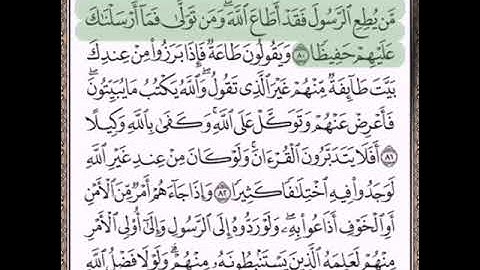 مَّن يُطِعِ ٱلرَّسُولَ فَقَدْ أَطَاعَ ٱللَّهَ ۖ وَمَن تَوَلَّىٰ فَمَآ أَرْسَلْنَٰكَ
عَلَيْهِمْ حَفِيظًا ٨٠ وَيَقُولُونَ طَاعَةٌ فَإِذَا بَرَزُوا۟ مِنْ عِندِكَ
بَيَّتَ طَآئِفَةٌ مِّنْهُمْ غَيْرَ ٱلَّذِى تَقُولُ ۖ وَٱللَّهُ يَكْتُبُ مَا يُبَيِّتُونَ ۖ
فَأَعْرِضْ عَنْهُمْ وَتَوَكَّلْ عَلَى ٱللَّهِ ۚ وَكَفَىٰ بِٱللَّهِ وَكِيلًا
٨١ أَفَلَا يَتَدَبَّرُونَ ٱلْقُرْءَانَ ۚ وَلَوْ كَانَ مِنْ عِندِ غَيْرِ ٱللَّهِ
لَوَجَدُوا۟ فِيهِ ٱخْتِلَٰفًا كَثِيرًا ٨٢ وَإِذَا جَآءَهُمْ أَمْرٌ مِّنَ ٱلْأَمْنِ
أَوِ ٱلْخَوْفِ أَذَاعُوا۟ بِهِۦ ۖ وَلَوْ رَدُّوهُ إِلَى ٱلرَّسُولِ وَإِلَىٰٓ أُو۟لِى ٱلْأَمْرِ
مِنْهُمْ لَعَلِمَهُ ٱلَّذِينَ يَسْتَنۢبِطُونَهُۥ مِنْهُمْ ۗ وَلَوْلَا فَضْلُ ٱللَّهِ